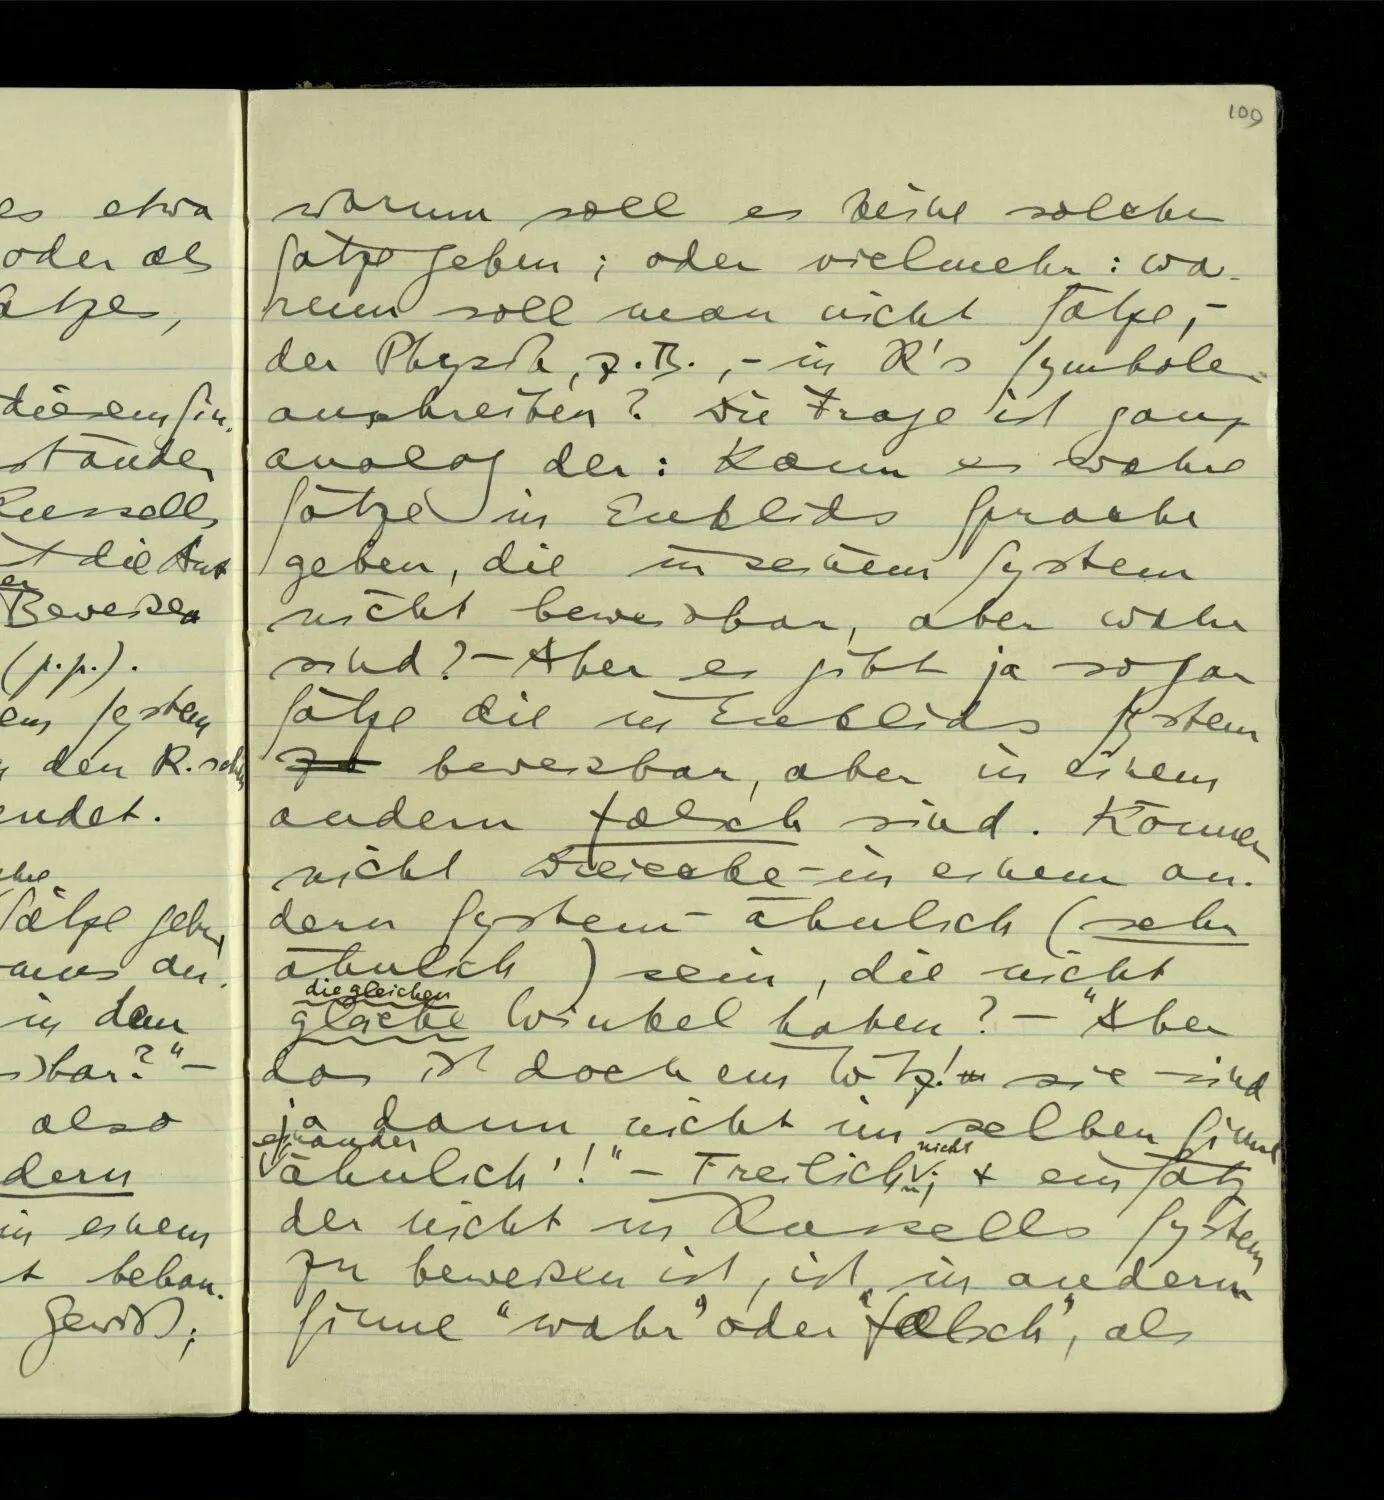 es etwa
oder als
ätze,
diesem Sin-
ständen
Russells
die Ant
Beweisen
(p.p.).
em System
den R.schen
endet.
Sätze geben,
aus dr.
in dem
bar?" –
also
dern
in einem
t behau-
Gewiß;
109
warum soll es keine solchen
Sätze geben; oder vielmehr: wa-
rum soll man nicht Sätze, –
der Physik, z.B., – in R's Symbolen
anschreiben? Die Frage ist ganz
analog der: Kann es wahre
Sätze in Euklids Sprache
geben, die in seinem System
nicht beweisbar, aber wahr
sind? – Aber es gibt ja sogar
Sätze die in Euklids System
beweisbar, aber in einem
andern falsch sind. Können
nicht Dreiecke – in einem an-
dern System – ähnlich (sehr
ähnlich) sein, die nicht
die gleichen
gleiche Winkel haben? – "Aber
das ist doch ein Witz! sie sind
ja dann nicht im selben Sinne
einander
nicht
'ähnlich'!" – Freilich; & ein Satz
der nicht in Russells System
zu beweisen ist, ist in anderm
Sinne "wahr" oder "falsch", als